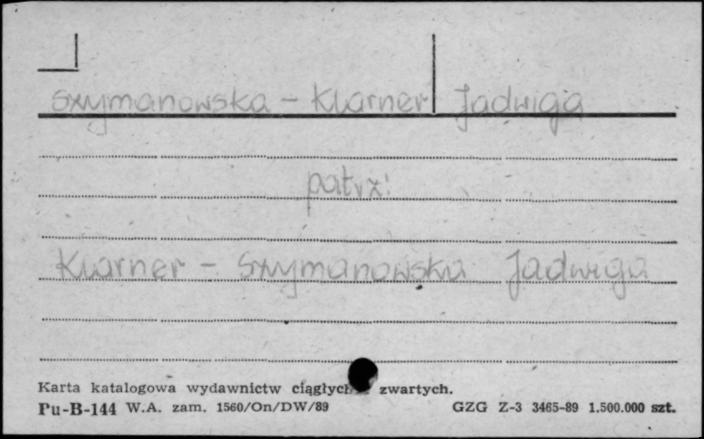 Szymanowska - Klarner Jadwiga
patrz:
Klarner - Szymanowska Jadwiga
Karta katalogowa wydawnictw ciągłych zwartych.
Pu-B-144 W.A. zam. 1560/On/DW/89 GZG Z-3 3465-89 1.500.000 szt.